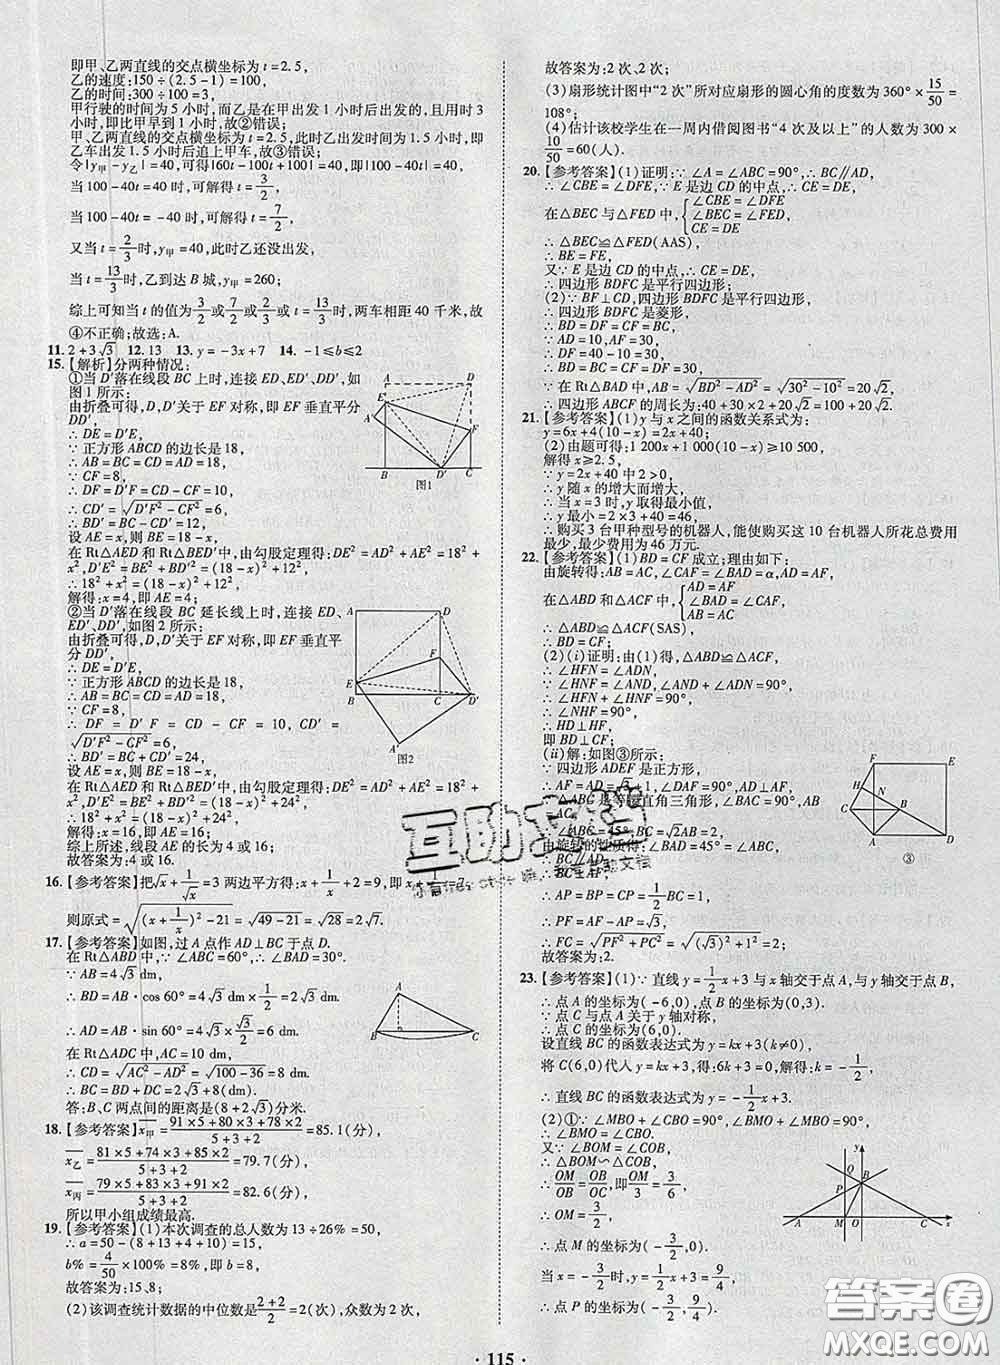 即甲、乙两直线的交点横坐标为t=2.5,
乙的速度:150÷(2.5-1)=100,
乙的时间:300÷100=3,
甲行驶的时间为5小时,而乙是在甲出发1小时后出发的,且用时3
小时,即比甲早到1小时,故②错误;
甲、乙两直线的交点横坐标为t=2.5,此时乙出发时间为1.5小时,即
乙车出发1.5小时后追上甲车,故③错误;
令|y甲-y乙|=40,可得|60t-100t+100|=40,即|100-40t|=40,
当100-40t=40时,可解得t=3/2,
当100-40t=-40时,可解得t=7/2,
又当t=2/3时,y甲=40,此时乙还没出发,
当t=13/3时,乙到达B城,y甲=260;
综上可知当t的值为3/2或7/2或2/3或t=13/3时,两车相距40千米,故
④不正确;故选:A.
11.2+3√3 12.13 13.y=-3x+7 14.-1≤b≤2
15.【解析】分两种情况:
①当D′落在线段BC上时,连接ED、ED′、DD′,如
图1所示:
由折叠可得,D,D′关于EF对称,即EF垂直平分
DD′,
∴DE=D′E,
∵正方形ABCD的边长是18,
∴AB=BC=CD=AD=18,
∵CF=8,
∴DF=D′F=CD-CF=10,
∴CD′=√(D′F²-CF²)=6,
∴BD′=BC-CD′=12,
设AE=x,则BE=18-x,
在Rt△AED和Rt△BED′中,由勾股定理得:DE²=AD²+AE²=18²+
x²,D′E²=BE²+BD′²=(18-x)²+12²,
∴18²+x²=(18-x)²+12²,
解得:x=4,即AE=4;
②当D′落在线段BC延长线上时,连接ED、
ED′、DD′,如图2所示:
由折叠可得,D,D′关于EF对称,即EF垂直平
分DD′,
∴DE=D′E,
∵正方形ABCD的边长是18,
∴AB=BC=CD=AD=18,
∵CF=8,
∴DF=D′F=CD-CF=10,CD′=
√(D′F²-CF²)=6,
∴BD′=BC+CD′=24,
设AE=x,则BE=18-x,
在Rt△AED和Rt△BED′中,由勾股定理得:DE²=AD²+AE²=18²+
x²,D′E²=BE²+BD′²=(18-x)²+24²,
∴18²+x²=(18-x)²+24²,
解得:x=16,即AE=16;
综上所述,线段AE的长为4或16.
故答案为:4或16.
16.【参考答案】把√x+1/√x=3两边平方得:x+1/x+2=9,即x+1/x=7,
则原式=√((x+1/x)²-21)=√(49-21)=√28=2√7.
17.【参考答案】如图,过A点作AD⊥BC于点D.
在Rt△ABD中,∵∠ABC=60°,
∵AB=4√3 dm,
∴BD=AB·cos 60°=4√3×1/2=2√3 dm,
∴AD=AB·sin 60°=4√3×√3/2=6 dm,
在Rt△ADC中,AC=10 dm,
∴CD=√(AC²-AD²)=√(100-36)=8 dm,
∴BC=BD+CD=2√3+8(dm).
答:B、C两点间的距离是(8+2√3)分米.
18.【参考答案】x甲=(91×5+80×3+78×2)/(5+3+2)=85.1(分),
x乙=(81×5+74×3+85×2)/(5+3+2)=79.7(分),
x丙=(79×5+83×3+90×2)/(5+3+2)=82.4(分),
所以甲小组成绩最高.
19.【参考答案】(1)本次调查的总人数为13÷26%=50,
∴a=50-(8+13+4+10)=15,
b%=4/50×100%=8%,即b=8,
故答案为:15、8;
(2)该调查统计数据的中位数是(2+2)/2=2(次),众数为2次,
故答案为:2次、2次;
(3)扇形统计图中“2次”所对应扇形的圆心角的度数为360°×15/50=
108°;
(4)估计该校学生在一周内借阅图书“4次及以上”的人数为300×
10/50=60(人).
20.【参考答案】(1)证明:∵∠A=∠ABC=90°,∴BC∥AD,
∴∠CBE=∠DFE,∵E是边CD的中点,∴CE=DE,
在△BEC与△FED中,{∠CBE=∠DFE ∠BEC=∠FED CE=DE
∴△BEC≌△FED(AAS),
∴BE=FE,
又∵E是边CD的中点,∴CE=DE,
∴四边形BDFC是平行四边形;
(2)∵BF⊥CD,四边形BDFC是平行四边形,
∴四边形BDFC是菱形,
∴BD=DF=CF=BC,
∵AF=40,AD=10,
∴DF=40-10=30,
∴BC=BD=CF=DF=30,
∵在Rt△BAD中,AB=√(BD²-AD²)=√(30²-10²)=20√2,
∴四边形ABCF的周长为:40+30×2+20√2=100+20√2.
21.【参考答案】(1)y与x之间的函数关系式为:
y=6x+4(10-x)=2x+40;
(2)由题可得:1 200x+1 000(10-x)≥10 500,
解得x≥2.5,
∵y=2x+40中2>0,
∴y随x的增大而增大,
∴当x=3时,y取得最小值,
∴y最小=2×3+40=46,
∴购买3台甲种型号的机器人,能使购买这10台机器人所花总费用
最少,最少费用为46万元.
22.【参考答案】(1)BD=CF成立;理由如下:
由旋转得:AC=AB,∠CAF=∠BAD=α,AD=AF,
在△ABD和△ACF中,{AD=AF ∠BAD=∠CAF AB=AC
∴△ABD≌△ACF(SAS),
∴BD=CF;
(2)(i)证明:由(1)得,△ABD≌△ACF,
∴∠HFN=∠ADN,
∵∠HNF=∠AND,∠AND+∠ADN=90°,
∴∠HFN+∠HNF=90°,
∴∠NHF=90°,
∴HD⊥HF,
即BD⊥CF;
(ii)解:如图③所示:
∵四边形ADEF是正方形,
∴AF=AD=√3+1,∠DAF=90°,
∵△ABC是等腰直角三角形,∠BAC=90°,
∴∠ABC=45°,BC=√2AB=2,
由旋转的性质得:∠BAD=45°=∠ABC,
∴AF⊥BC,
∴AP=BP=CP=1/2BC=√2/2AB=1,
∴PF=AF-AP=√3,
∴FC=√(PF²+PC²)=√((√3)²+1²)=2,
故答案为:2.
23.【参考答案】(1)∵直线y=1/2x+3与x轴交于点A,与y轴交于点B,
∴点A的坐标为(-6,0),点B的坐标为(0,3).
∵点C与点A关于y轴对称,
∴点C的坐标为(6,0).
设直线BC的函数表达式为y=kx+3(k≠0),
将C(6,0)代入y=kx+3,得:6k+3=0,解得:k=-1/2,
∴直线BC的函数表达式为y=-1/2x+3.
(2)①∵∠MBO+∠CBO=90°,∠BMO+∠MBO=90°,
∴∠BMO=∠CBO.
又∵∠BOM=∠COB=90°,
∴△BOM∽△COB,
∴OM/OB=OB/OC,即OM/3=3/6,
∴OM=3/2,
∴点M的坐标为(-3/2,0).
当x=-3/2时,y=1/2x+3=9/4,
∴点P的坐标为(-3/2,9/4).
A D E F B D′ C 图1
A D F E B C D′ A′ 图2
A B C
F E H N C B A D ③
y Q B P A M O C x
互助文档
答案圈
MXQE.COM
·115·